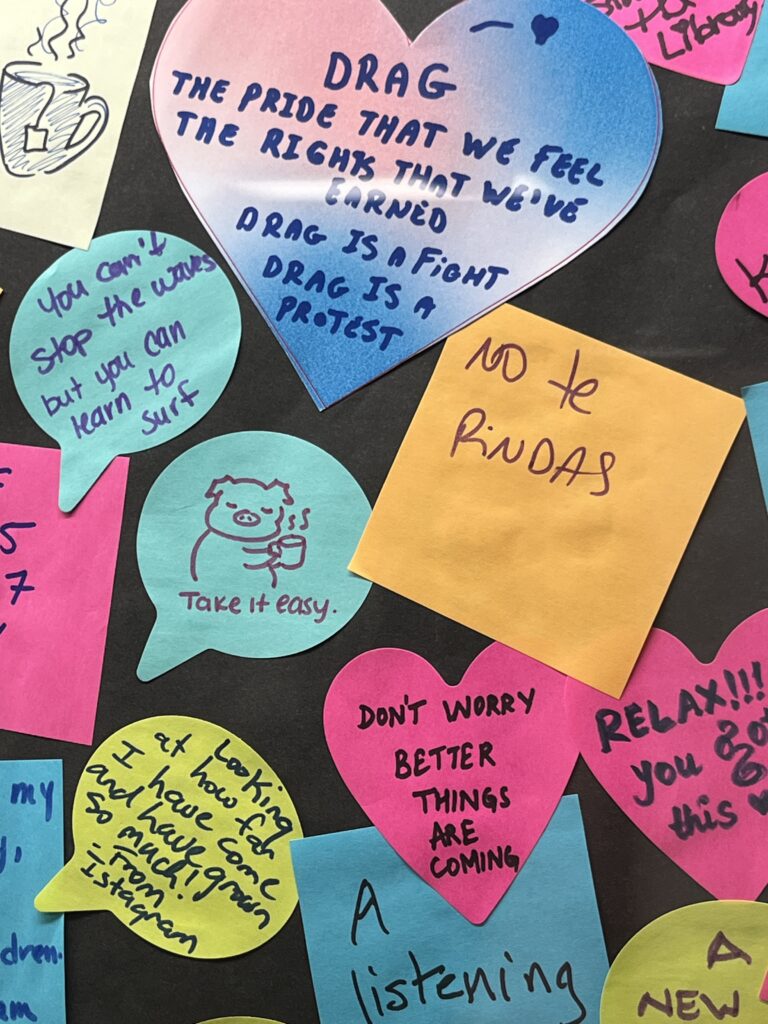 DRAG
THE PRIDE THAT WE FEEL
THE RIGHTS THAT WE'VE
EARNED
DRAG IS A FIGHT
DRAG IS A
PROTEST
to
Library
You can't
stop the waves
but you can
learn to
surf
NO te
RiNDAS
Take it easy.
5
7
DON'T WORRY
BETTER
THINGS
ARE
COMING
RELAX!!!
you got
this
at Looking
I how far
and have come
so have grown
much!
- From
Istagram
my
dren.
A
listening
A
NEW